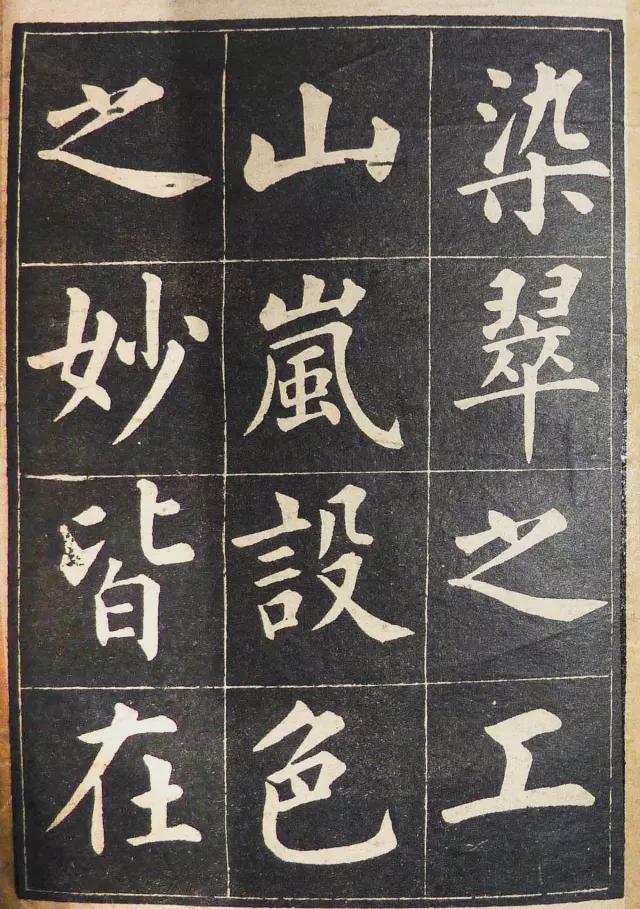 染翠之工
山嵐設色
之妙皆在